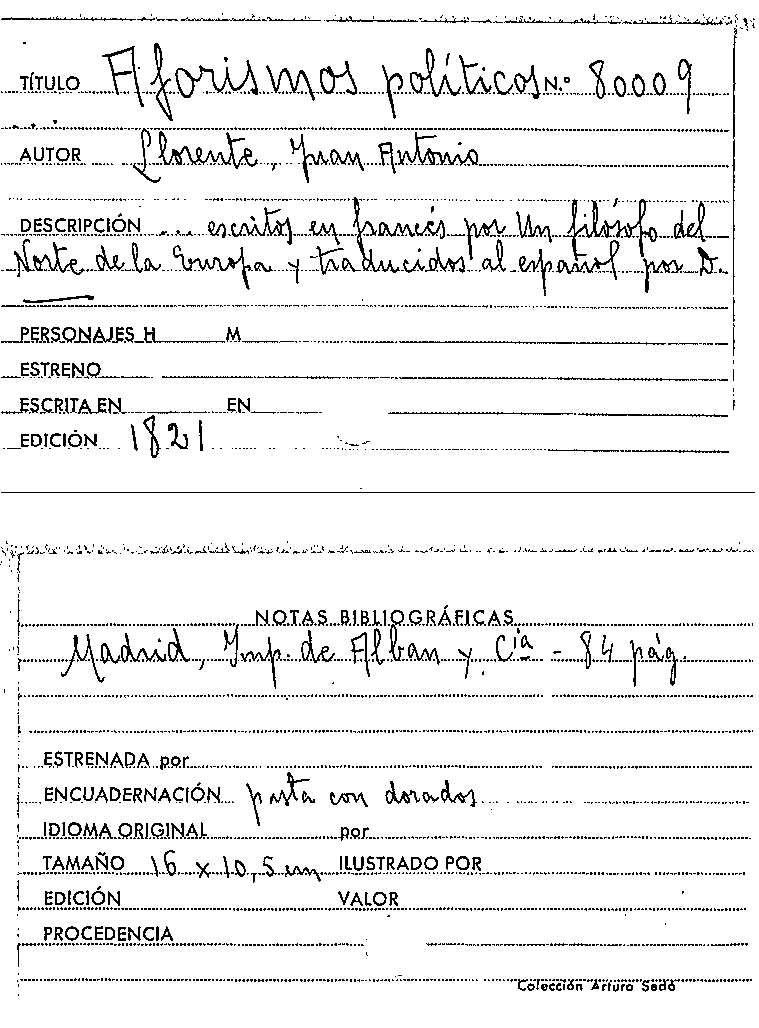 TÍTULO Aforismos políticos N.º 80009
AUTOR Llorente, Juan Antonio
DESCRIPCIÓN ... escritos en francés por Un filósofo del
Norte de la Europa y traducidos al español por D.
PERSONAJES H M
ESTRENO
ESCRITA EN EN
EDICIÓN 1821
NOTAS BIBLIOGRÁFICAS
Madrid, Imp. de Alban y Cía - 84 pág.
ESTRENADA por
ENCUADERNACIÓN pasta con dorados
IDIOMA ORIGINAL por
TAMAÑO 16 x 10,5 cm ILUSTRADO POR
EDICIÓN VALOR
PROCEDENCIA
Colección Arturo Sedó